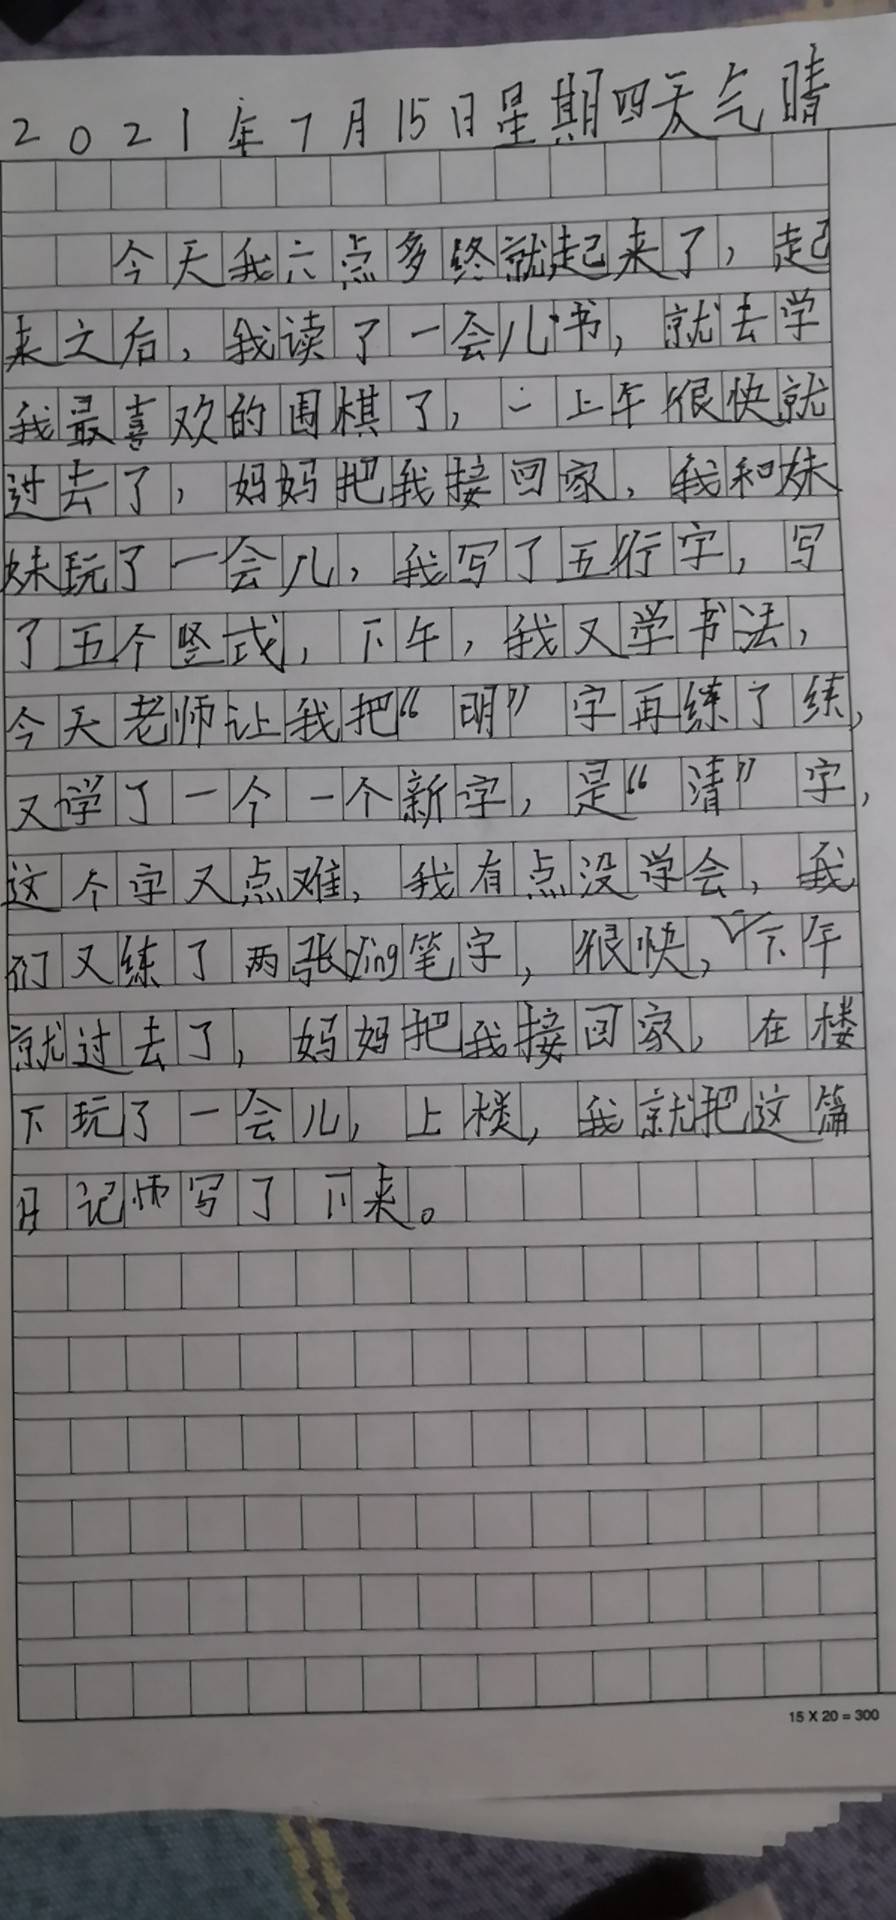 2021年7月15日星期四天气晴
今天我六点多终就起来了，起
来之后，我读了一会儿书，就去学
我最喜欢的围棋了，一上午很快就
过去了，妈妈把我接回家，我和妹
妹玩了一会儿，我写了五行字，写
了五个竖式，下午，我又学书法，
今天老师让我把“明”字再练了练，
又学了一个一个新字，是“清”字，
这个字又点难，我有点没学会，我
们又练了两张ying笔字，很快，下午
就过去了，妈妈把我接回家，在楼
下玩了一会儿，上楼，我就把这篇
日记写了下来。
15 X 20 = 300